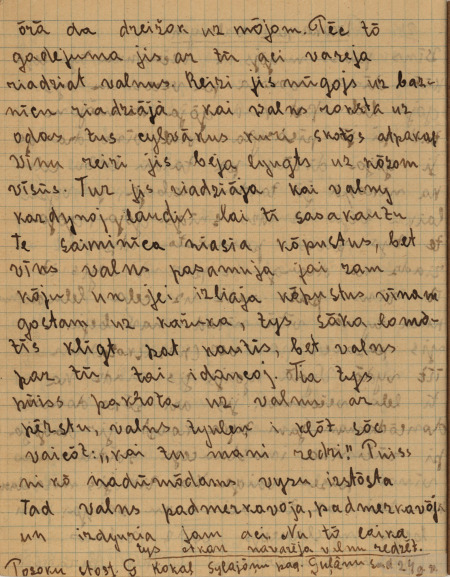 ōrā da dreižok uz mōjom. Pēc tō
gadejuma jis ar tū aci vareja
riadziat valnus. Reizi jis nūgojs uz baz-
nicu riadziāja kai valns roksta uz
odas tus cylvākus kuri skotōs atpakaļ
Vīnu reizi jis beja lyugts uz kōzom
vīsūs. Tur jis riadziāja kai valny
kardynoj ļaudis lai tī sasakautu
Te saiminīca niasia kōpustus, bet
vīns valns pasamuja jai zam
kōju un jei izliaja kōpustus vīnam
gostam uz kažuka, tys sāka lomō-
tīs kligt pat kautīs, bet valns
par tīs tai idancoj. Tia tys
pūiss pakrota uz valnu ar
pērstu, valns tyuleņ i klōt sōc
vaicōt: „kai tu mani redzi!" Pūiss
ni kō nadūmōdams vysu izstōsta
Tad valns padmerkavōja, padmerkavōja
un izdyuria jam aci. Nu tō laika
tys otkon navarēja valnu redzēt.
Posoku stost. G Kokal Sylajōņu pag. Gulānu sad 24 g. v.